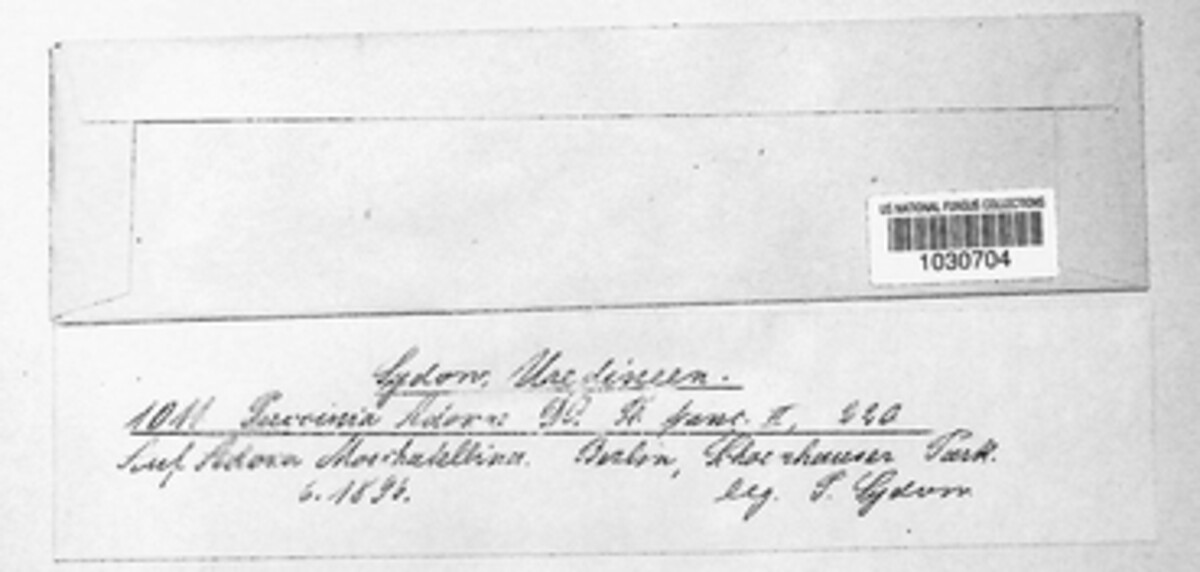 US NATIONAL FUNGUS COLLECTIONS
1030704
Sydow, Uredineen.
1011 Puccinia Adoxae DC. Fl. franc. II, 220
Auf Adoxa Moschatellina. Berlin, Schoenhauser Park.
leg. P. Sydow